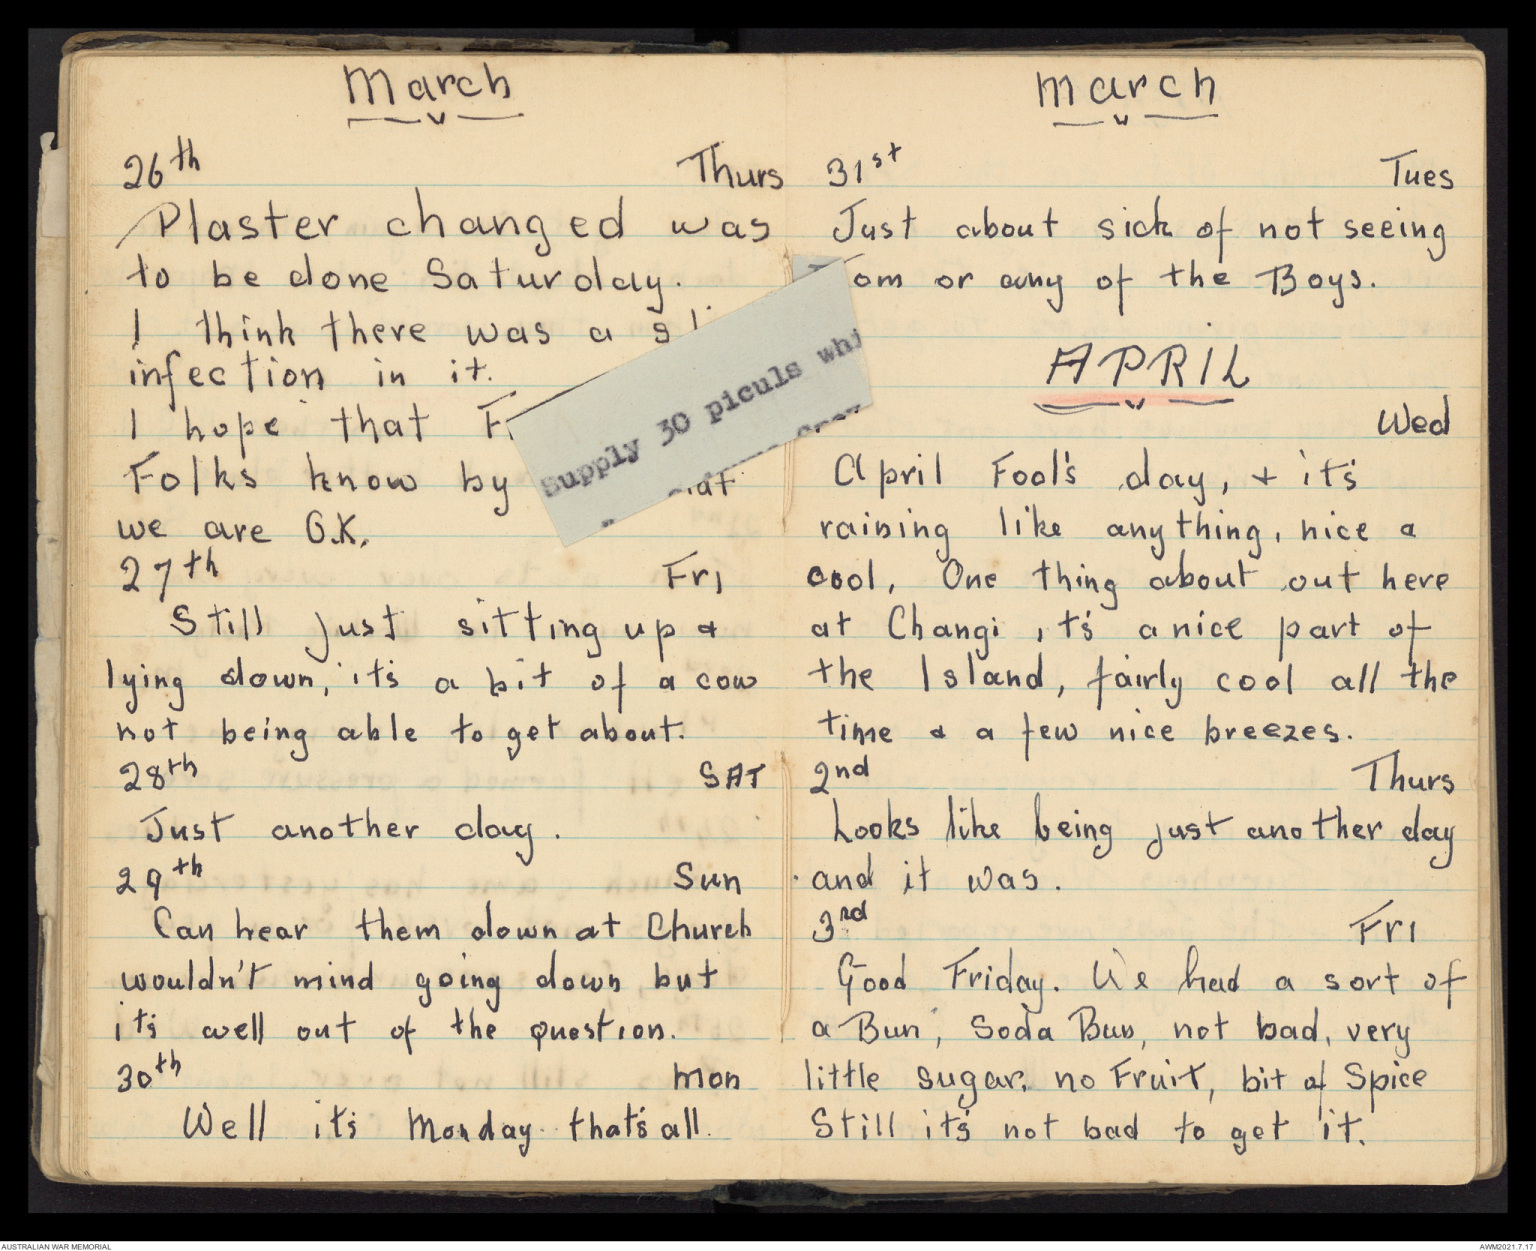 March
26th Thurs
Plaster changed was
to be done Saturday.
I think there was a
infection in it.
I hope that
Folks know by
we are O.K.
27th Fri
Still just sitting up &
lying down, it's a bit of a cow
not being able to get about.
28th SAT
Just another day.
29th Sun
Can hear them down at Church
wouldn't mind going down, but
it's well out of the question.
30th Mon
Well it's Monday that's all.
Supply 30 piculs whi
March
31st Tues
Just about sick of not seeing
Tom or any of the Boys.
APRIL
Wed
April Fool's day, + it's
raining like anything, nice &
cool, One thing about out here
at Changi, it's a nice part of
the Island, fairly cool all the
time & a few nice breezes.
2nd Thurs
Looks like being just another day
and it was.
3rd Fri
Good Friday. We had a sort of
a Bun, Soda Bun, not bad, very
little sugar, no Fruit, bit of Spice
Still it's not bad to get it.
AUSTRALIAN WAR MEMORIAL
AWM2021.7.17